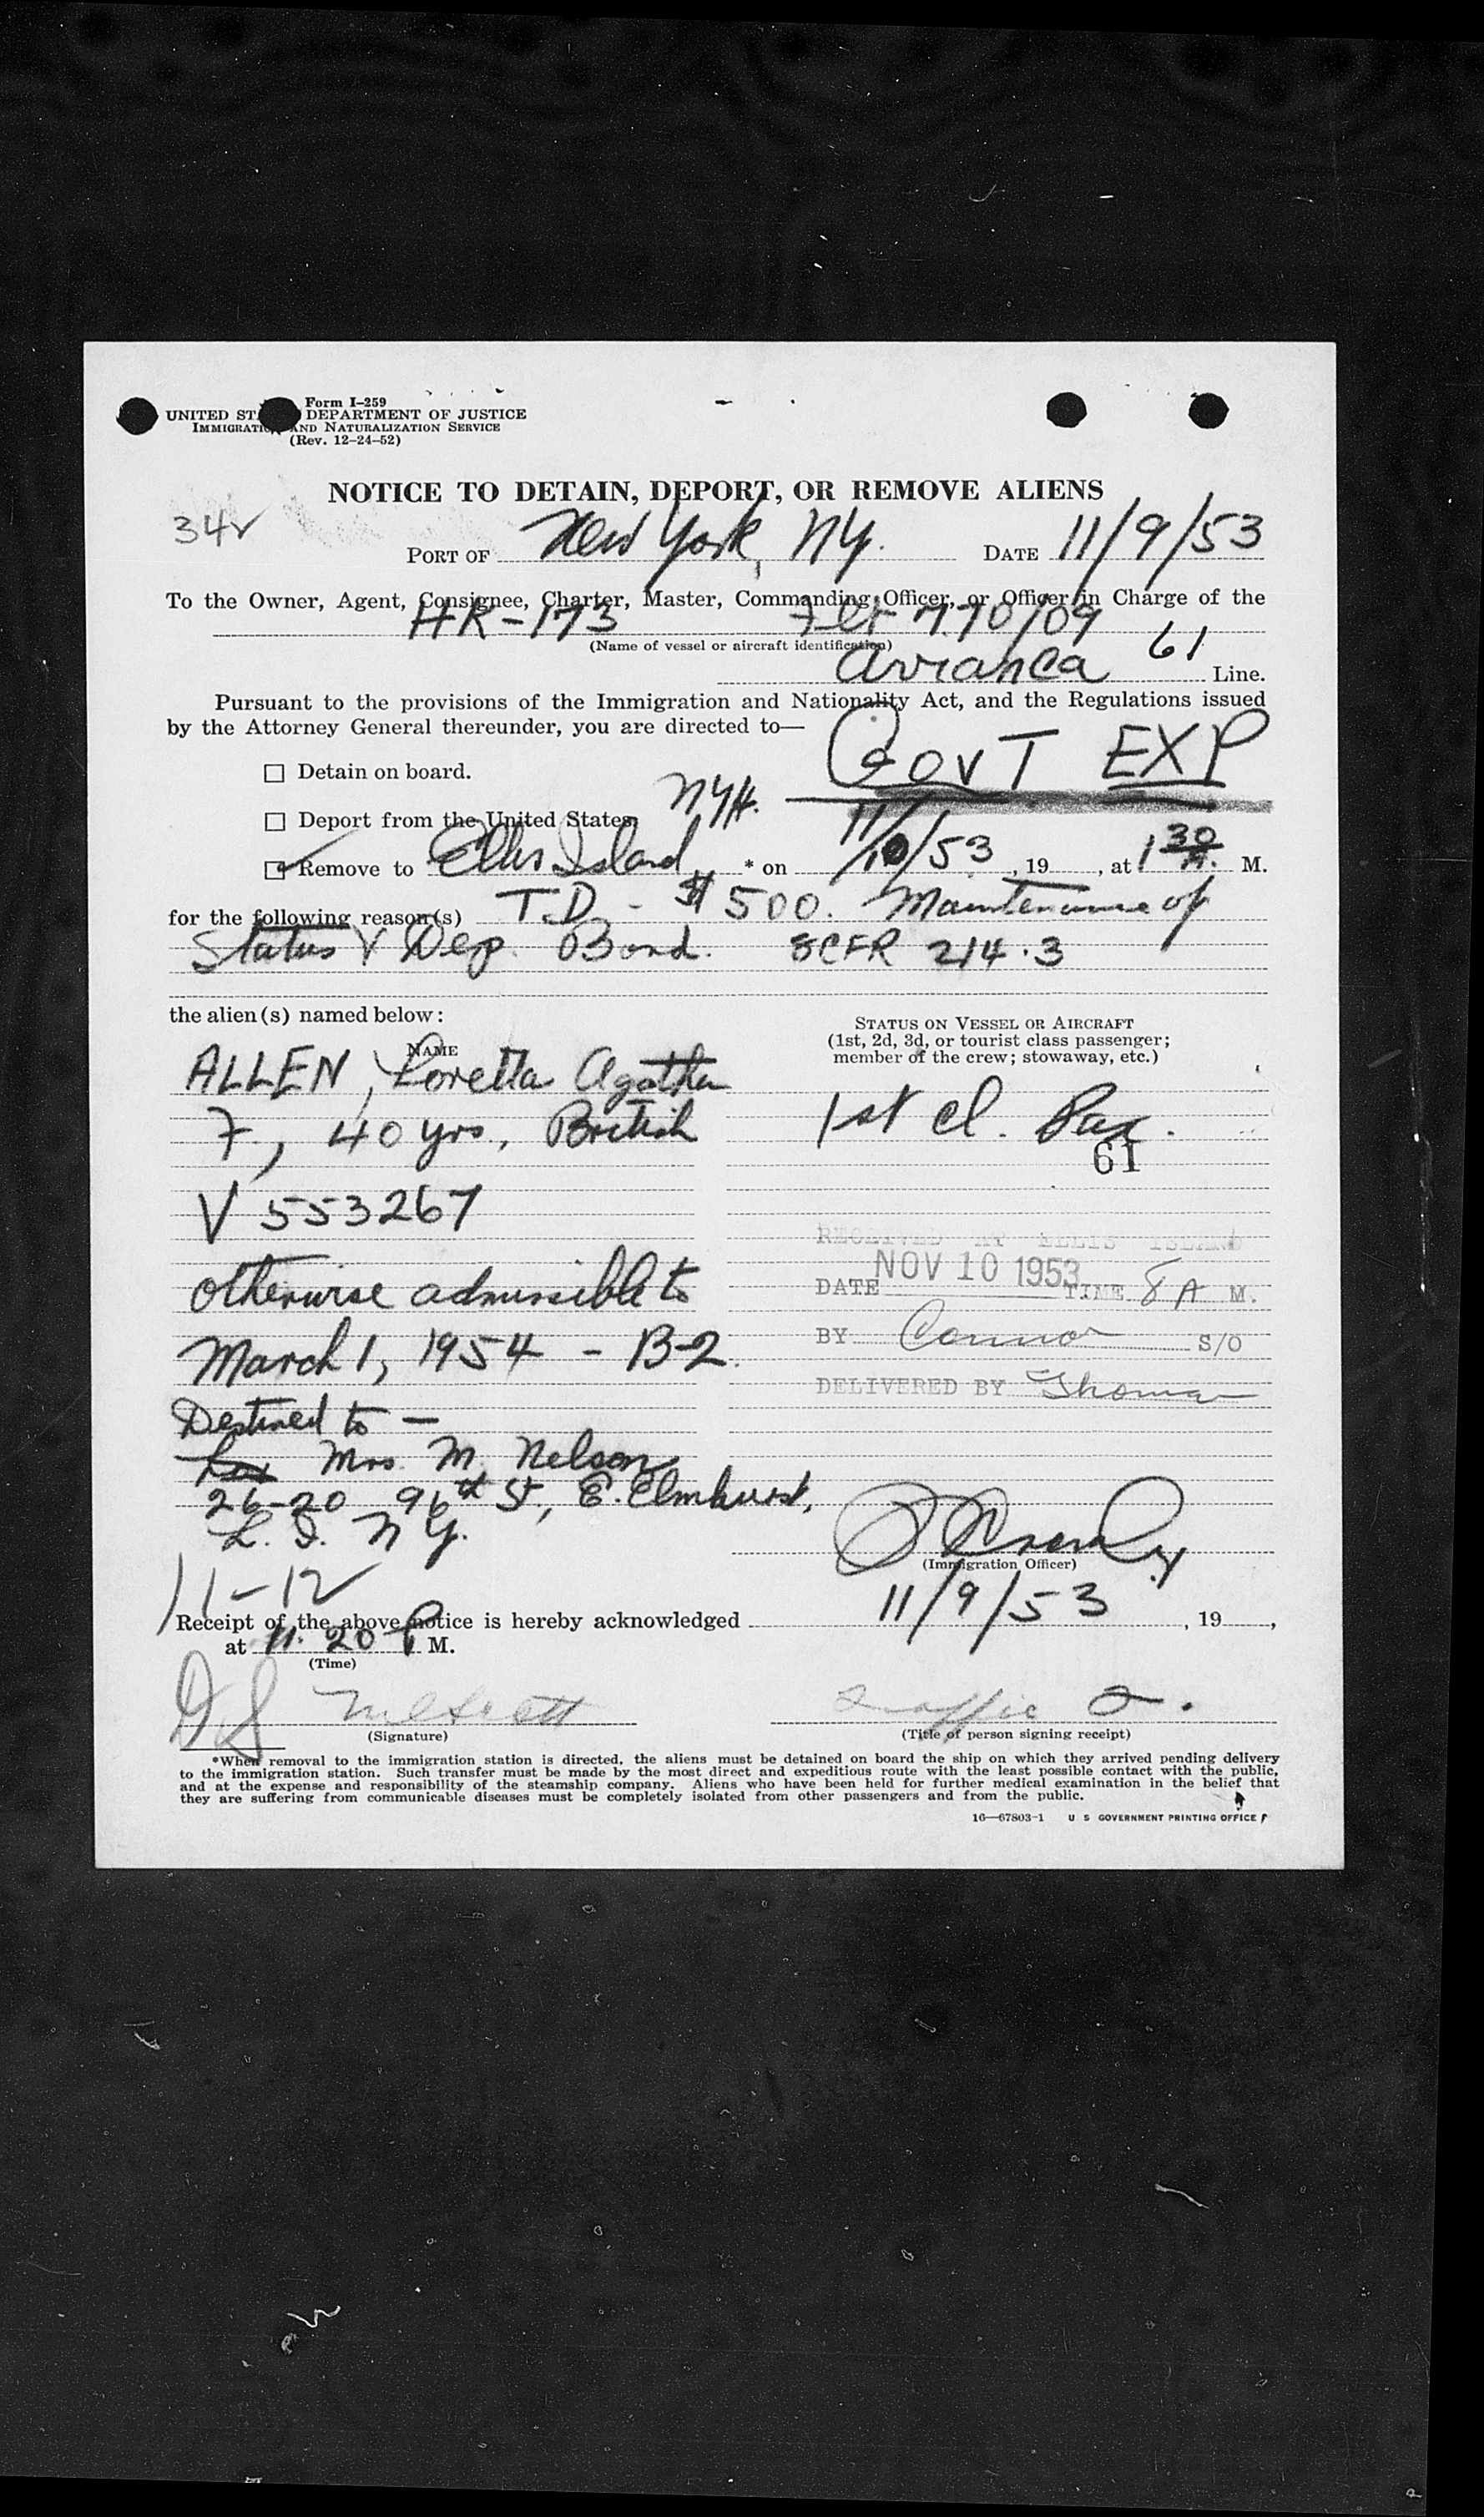 Form I-259
UNITED ST DEPARTMENT OF JUSTICE
IMMIGRATI AND NATURALIZATION SERVICE
(Rev. 12-24-52)
NOTICE TO DETAIN, DEPORT, OR REMOVE ALIENS
34
PORT OF New York, NY. DATE 11/9/53
To the Owner, Agent, Consignee, Charter, Master, Commanding Officer, or Officer in Charge of the
HK-173 Flt 770/09
(Name of vessel or aircraft identification)
Avianca 61 Line.
Pursuant to the provisions of the Immigration and Nationality Act, and the Regulations issued
by the Attorney General thereunder, you are directed to—
GOVT EXP
☐ Detain on board.
NYH.
☐ Deport from the United States.
☑ Remove to Ellis Island * on 11/10/53, 19 , at 1 30 A. M.
for the following reason(s) T.D. - $500. Maintenance of
Status & Dep. Bond. 8CFR 214.3
the alien(s) named below:
NAME
STATUS ON VESSEL OR AIRCRAFT
(1st, 2d, 3d, or tourist class passenger;
member of the crew; stowaway, etc.)
ALLEN, Loretta Agatha
F, 40 yrs, British
1st cl. Pax.
61
V 553267
RECEIVED AT ELLIS ISLAND
otherwise admissible to
DATE NOV 10 1953 TIME 8 A M.
March 1, 1954 - B-2.
BY Connor S/O
DELIVERED BY Thomas
Destined to —
Mrs. M. Nelson
26-20 96th St, E. Elmhurst,
L. I. N Y.
(Immigration Officer)
11-12
Receipt of the above notice is hereby acknowledged 11/9/53, 19 ,
at 11:20 P M.
(Time)
Traffic
(Signature)
(Title of person signing receipt)
*When removal to the immigration station is directed, the aliens must be detained on board the ship on which they arrived pending delivery
to the immigration station. Such transfer must be made by the most direct and expeditious route with the least possible contact with the public,
and at the expense and responsibility of the steamship company. Aliens who have been held for further medical examination in the belief that
they are suffering from communicable diseases must be completely isolated from other passengers and from the public.
16—67803-1 U S GOVERNMENT PRINTING OFFICE